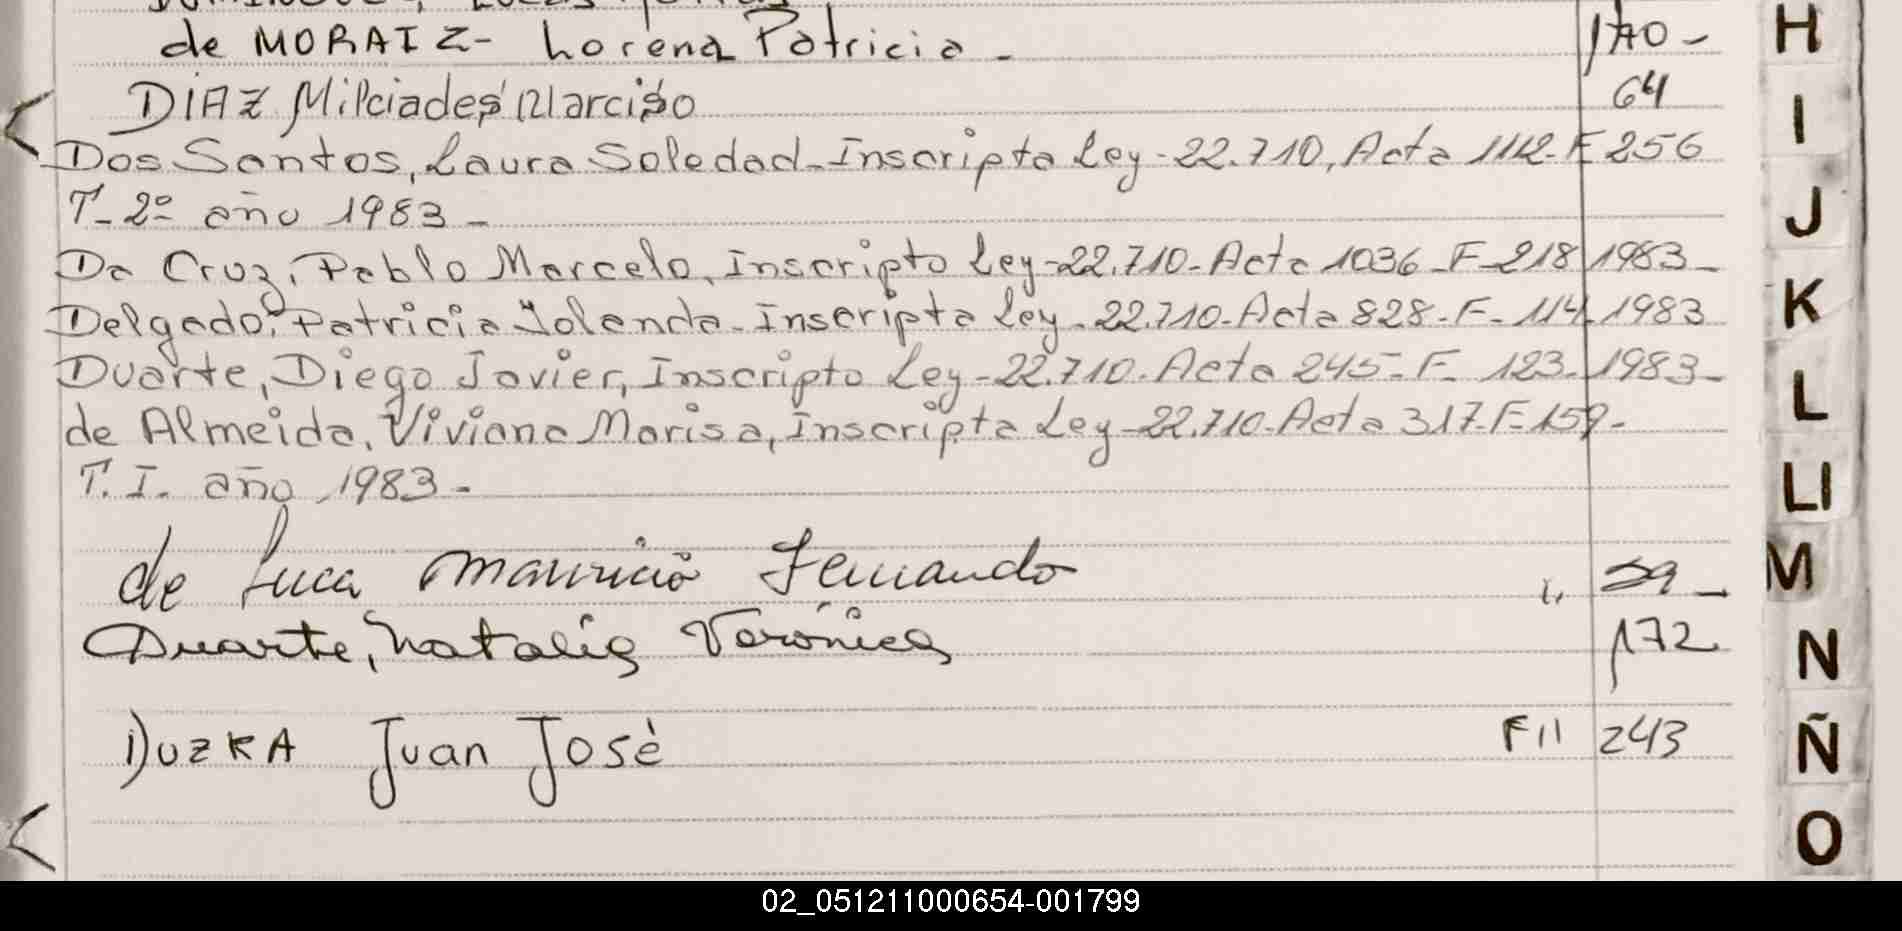 de MORAIZ- Lorena Patricia - 170-
DIAZ Milciades Narciso 64
Dos Santos, Laura Soledad-Inscripta Ley-22.710, Acta 1112-F 256
T-2º año 1983-
Da Cruz, Pablo Marcelo, Inscripto Ley-22.710-Acta 1036-F-218 1983-
Delgado, Patricia Yolanda-Inscripta Ley-22.710-Acta 828-F-114 1983
Duarte, Diego Javier, Inscripto Ley-22.710-Acta 245-F- 123- 1983-
de Almeida, Viviana Marisa, Inscripta Ley-22.710-Acta 317-F-159-
T. I. año 1983-
de Luca Mauricio Fernando " 39-
Duarte, Natalia Verónica 172
DUZKA Juan José F11 243
H
I
J
K
L
Ll
M
N
Ñ
O
02_051211000654-001799